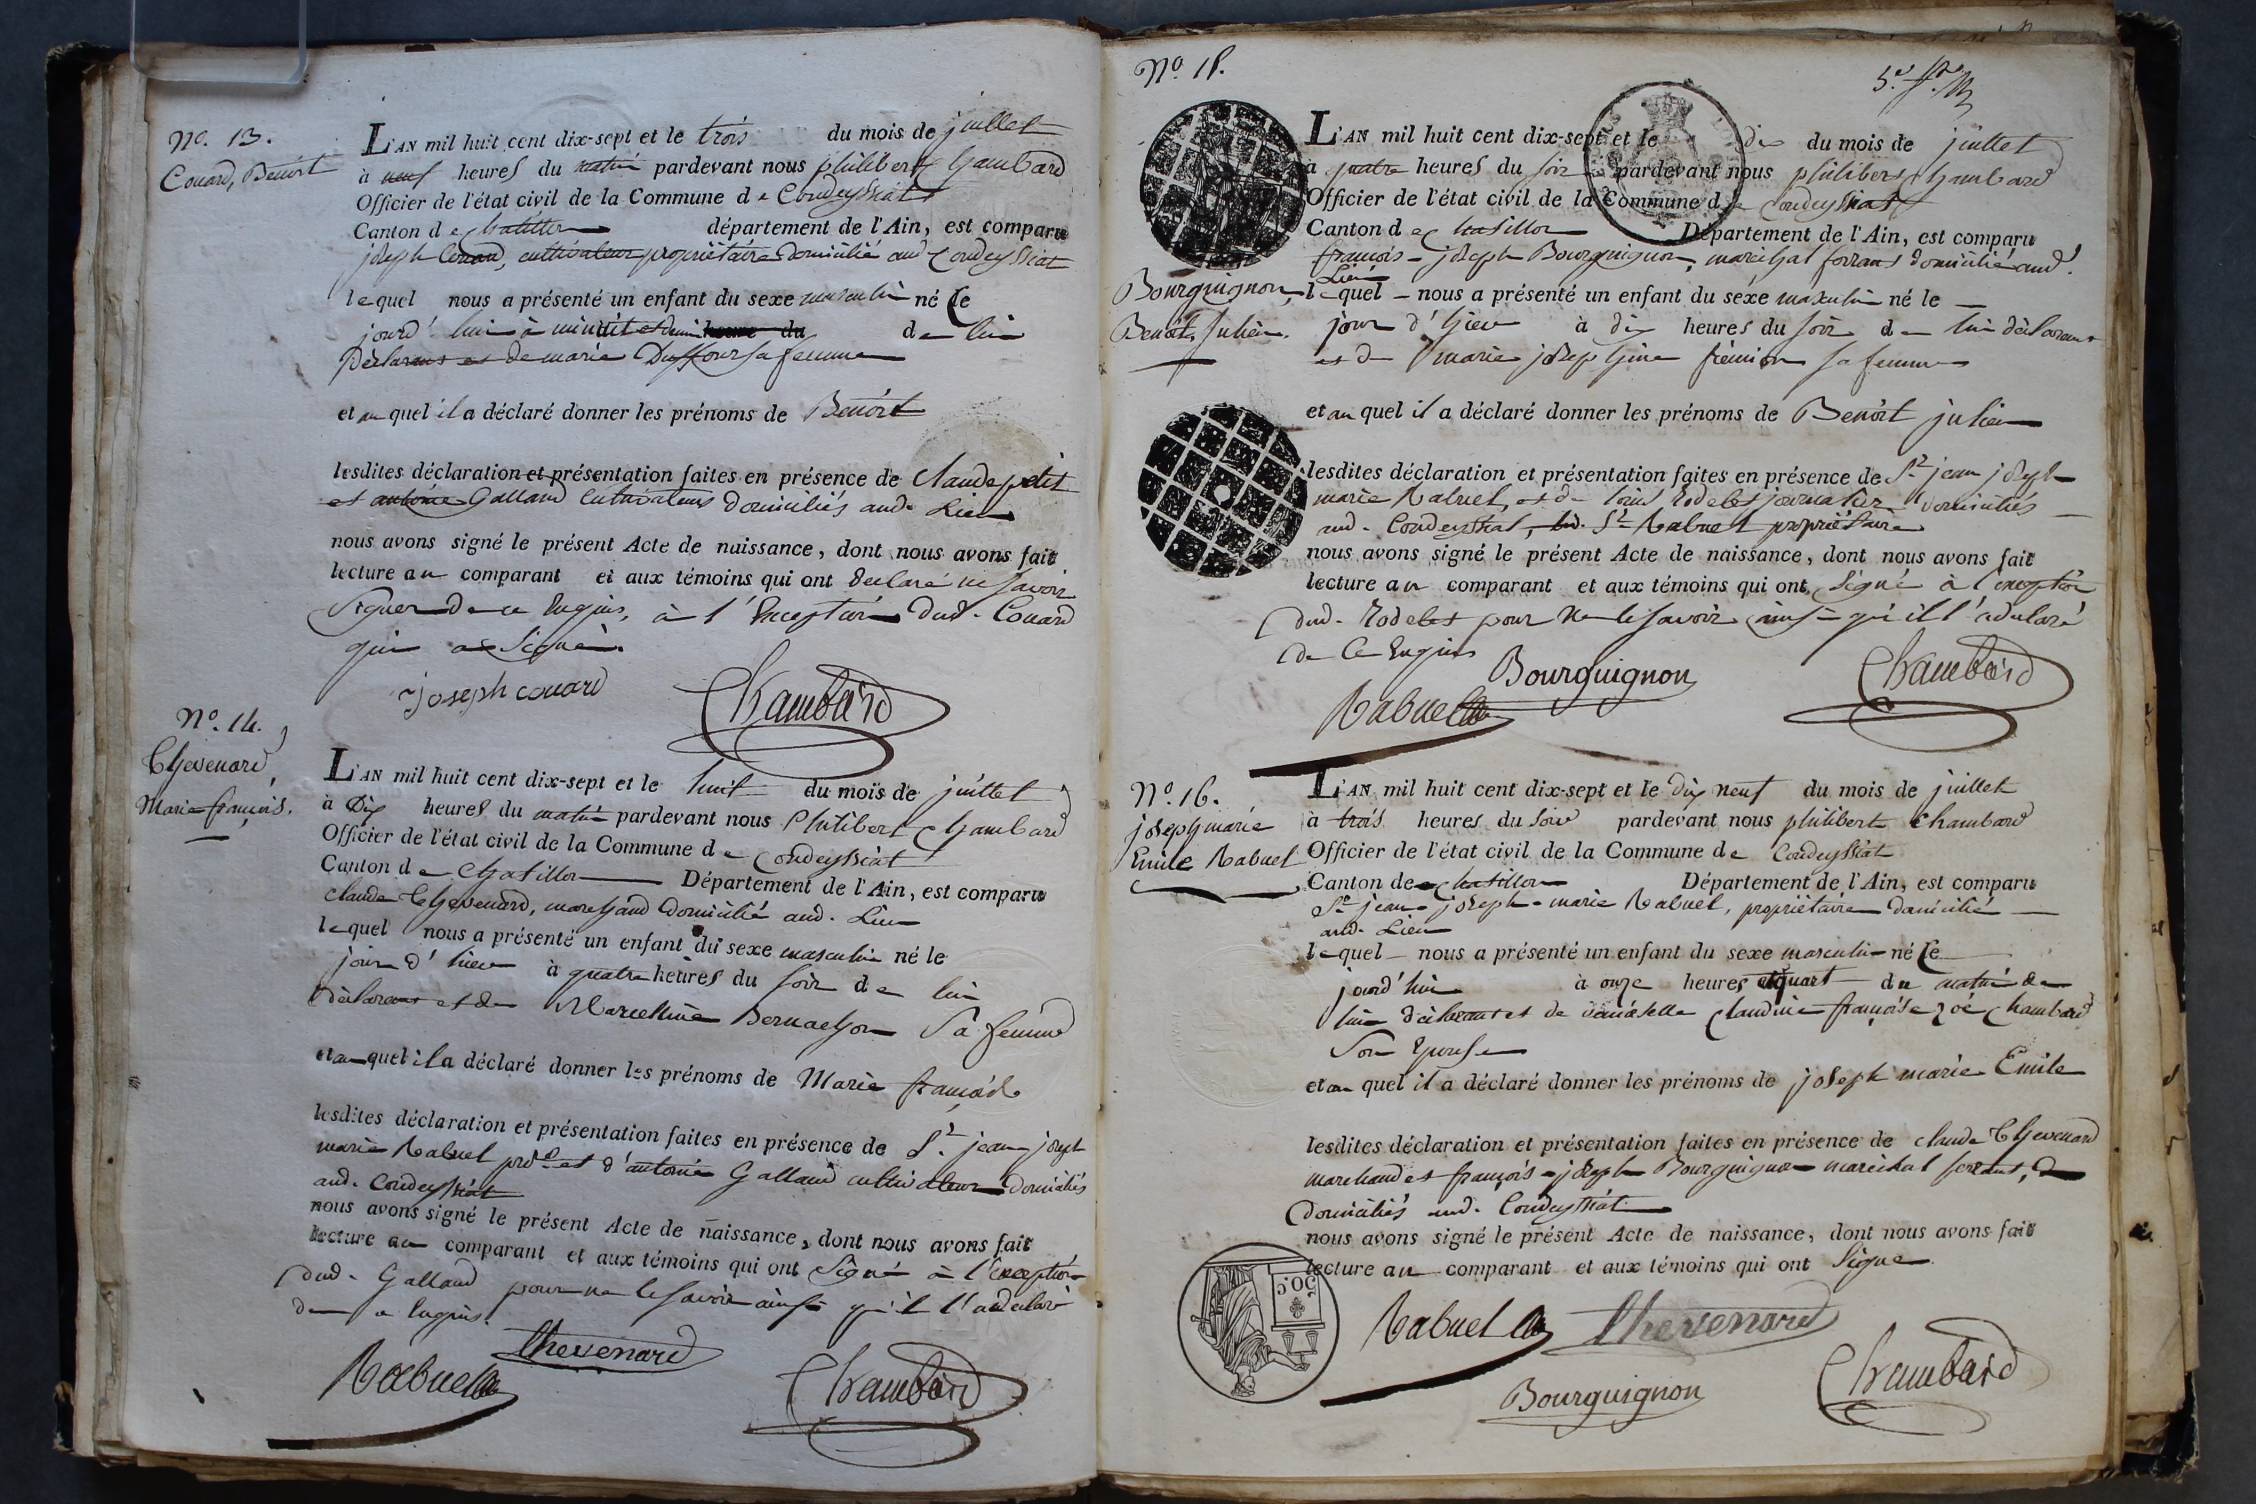 No. 13.
Couard, Benoit
L'AN mil huit cent dix-sept et le trois du mois de juillet
à neuf heures du matin pardevant nous philibert Chambard
Officier de l'état civil de la Commune de Condeyssiat
Canton de chatillon département de l'Ain, est comparu
joseph Couard, cultivateur propriétaire domicilié aud Condeyssiat
lequel nous a présenté un enfant du sexe masculin né Ce
jourd'hui à minuit et demi heure du de lui
Déclarant et de marie Duffour sa femme
et au quel il a déclaré donner les prénoms de Benoit
lesdites déclaration et présentation faites en présence de Claude petit
et antoine Galland Cultivateurs domiciliés aud. Lieu
nous avons signé le présent Acte de naissance, dont nous avons fait
lecture au comparant et aux témoins qui ont declaré ne savoir
Signer de ce Enquis, à l'Exception dud. Couard
qui a Signé.
joseph couard Chambard
No. 14.
Thevenard,
Marie françois.
L'AN mil huit cent dix-sept et le huit du mois de juillet
à Dix heures du matin pardevant nous Philibert Chambard
Officier de l'état civil de la Commune de Condeyssiat
Canton de Chatillon Département de l'Ain, est comparu
Claude Thevenard, marchand domicilié aud. Lieu
lequel nous a présenté un enfant du sexe masculin né le
jour d'hier à quatre heures du soir de lui
Déclarant et de Marcelline Bernachon Sa femme
et au quel il a déclaré donner les prénoms de Marie françois
lesdites déclaration et présentation faites en présence de Sr. jean joseph
marie Rabuel pre. et d'antoine Galland cultivateur domiciliés
aud. Condeyssiat
nous avons signé le présent Acte de naissance, dont nous avons fait
lecture au comparant et aux témoins qui ont Signé à l'exception
dud. Galland pour ne le savoir ainsi qu'il l'a declaré
de ce enquis.
Rabuel thevenard Chambard
No. 15.
Bourguignon,
Benoit, Julien.
L'AN mil huit cent dix-sept et le dix du mois de juillet
à quatre heures du soir pardevant nous philibert Chambard
Officier de l'état civil de la Commune de Condeyssiat
Canton de Chatillon Département de l'Ain, est comparu
françois-joseph Bourguignon, maréchal ferrant domicilié aud.
Lieu
lequel nous a présenté un enfant du séxe masculin né le
jour d'hier à dix heures du soir de lui déclarant
et de marie josephine frémion sa femme
et au quel il a déclaré donner les prénoms de Benoit julien
lesdites déclaration et présentation faites en présence de Sr. jean joseph
marie Rabuel, et de Rodelet journalier domiciliés
aud. Condeyssiat, led. Sr. Rabuel propriétaire
nous avons signé le présent Acte de naissance, dont nous avons fait
lecture au comparant et aux témoins qui ont Signé à l'exception
dud. Rodelet pour ne le savoir ainsi qu'il l'a declaré
de Ce Enquis
Bourguignon Rabuel Chambard
No. 16.
joseph marie
Emile Rabuel
L'AN mil huit cent dix-sept et le dix neuf du mois de juillet
à trois heures du soir pardevant nous philibert Chambard
Officier de l'état civil de la Commune de Condeyssiat
Canton de Chatillon Département de l'Ain, est comparu
Sr. jean-joseph-marie Rabuel, propriétaire domicilié
aud. Lieu
lequel nous a présenté un enfant du sexe masculin né Ce
jourd'hui à onze heures et quart du matin de
lui déclarant et de demoiselle Claudine françoise zoé Chambard
Son Epouse
et au quel il a déclaré donner les prénoms de joseph marie Emile
lesdites déclaration et présentation faites en présence de claude Thevenard
marchand et françois-joseph Bourguignon maréchal ferrant,
Domiciliés aud. Condeyssiat
nous avons signé le présent Acte de naissance, dont nous avons fait
lecture au comparant et aux témoins qui ont Signé
50. C
Rabuel thevenard
Bourguignon Chambard